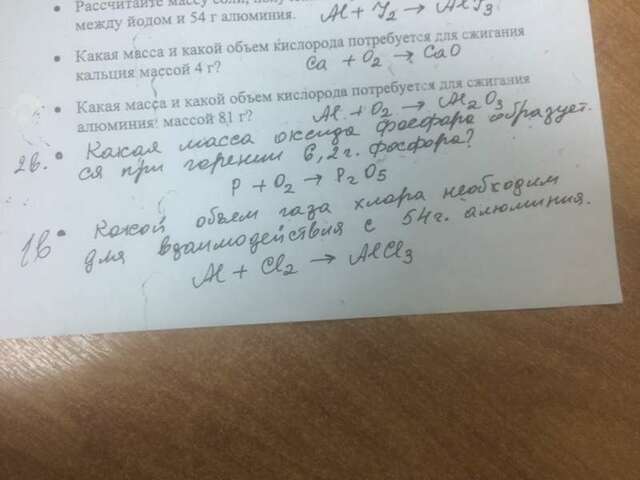 • Рассчитайте массу соли,
между йодом и 54 г алюминия. Al + J₂ → AlJ₃
• Какая масса и какой объем кислорода потребуется для сжигания
кальция массой 4 г? Ca + O₂ → CaO
• Какая масса и какой объем кислорода потребуется для сжигания
алюминия: массой 81 г? Al + O₂ → Al₂O₃
2в. • Какая масса оксида фосфора образует-
ся при горении 6,2 г. фосфора?
P + O₂ → P₂O₅
1в • Какой объем газа хлора необходим
для взаимодействия с 54 г. алюминия.
Al + Cl₂ → AlCl₃